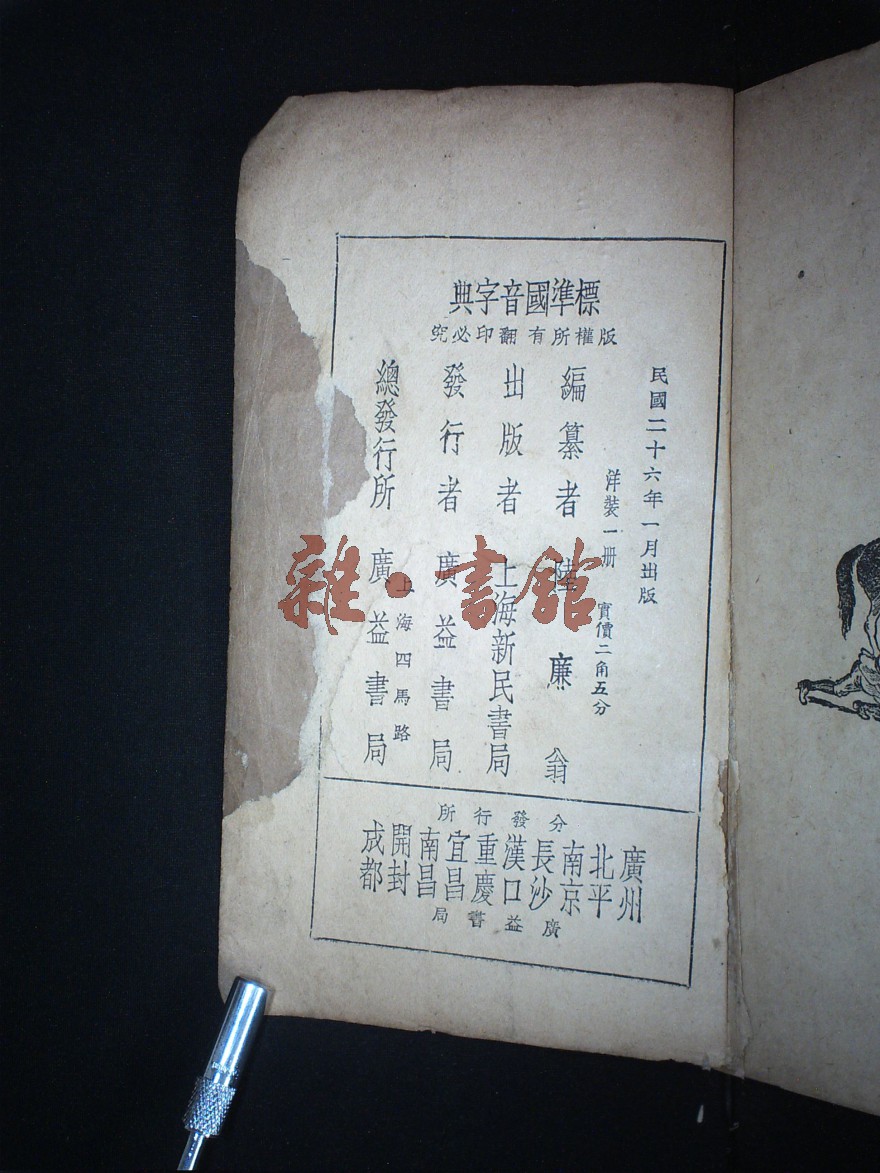 標準國音字典
版權所有 翻印必究
民國二十六年一月出版
洋裝一册 實價二角五分
編纂者 陸廉翁
出版者 上海新民書局
發行者 廣益書局
總發行所 廣益書局
上海四馬路
分發行所
廣州
北平
南京
長沙
漢口
重慶
宜昌
南昌
開封
成都
廣益書局
雜·書館